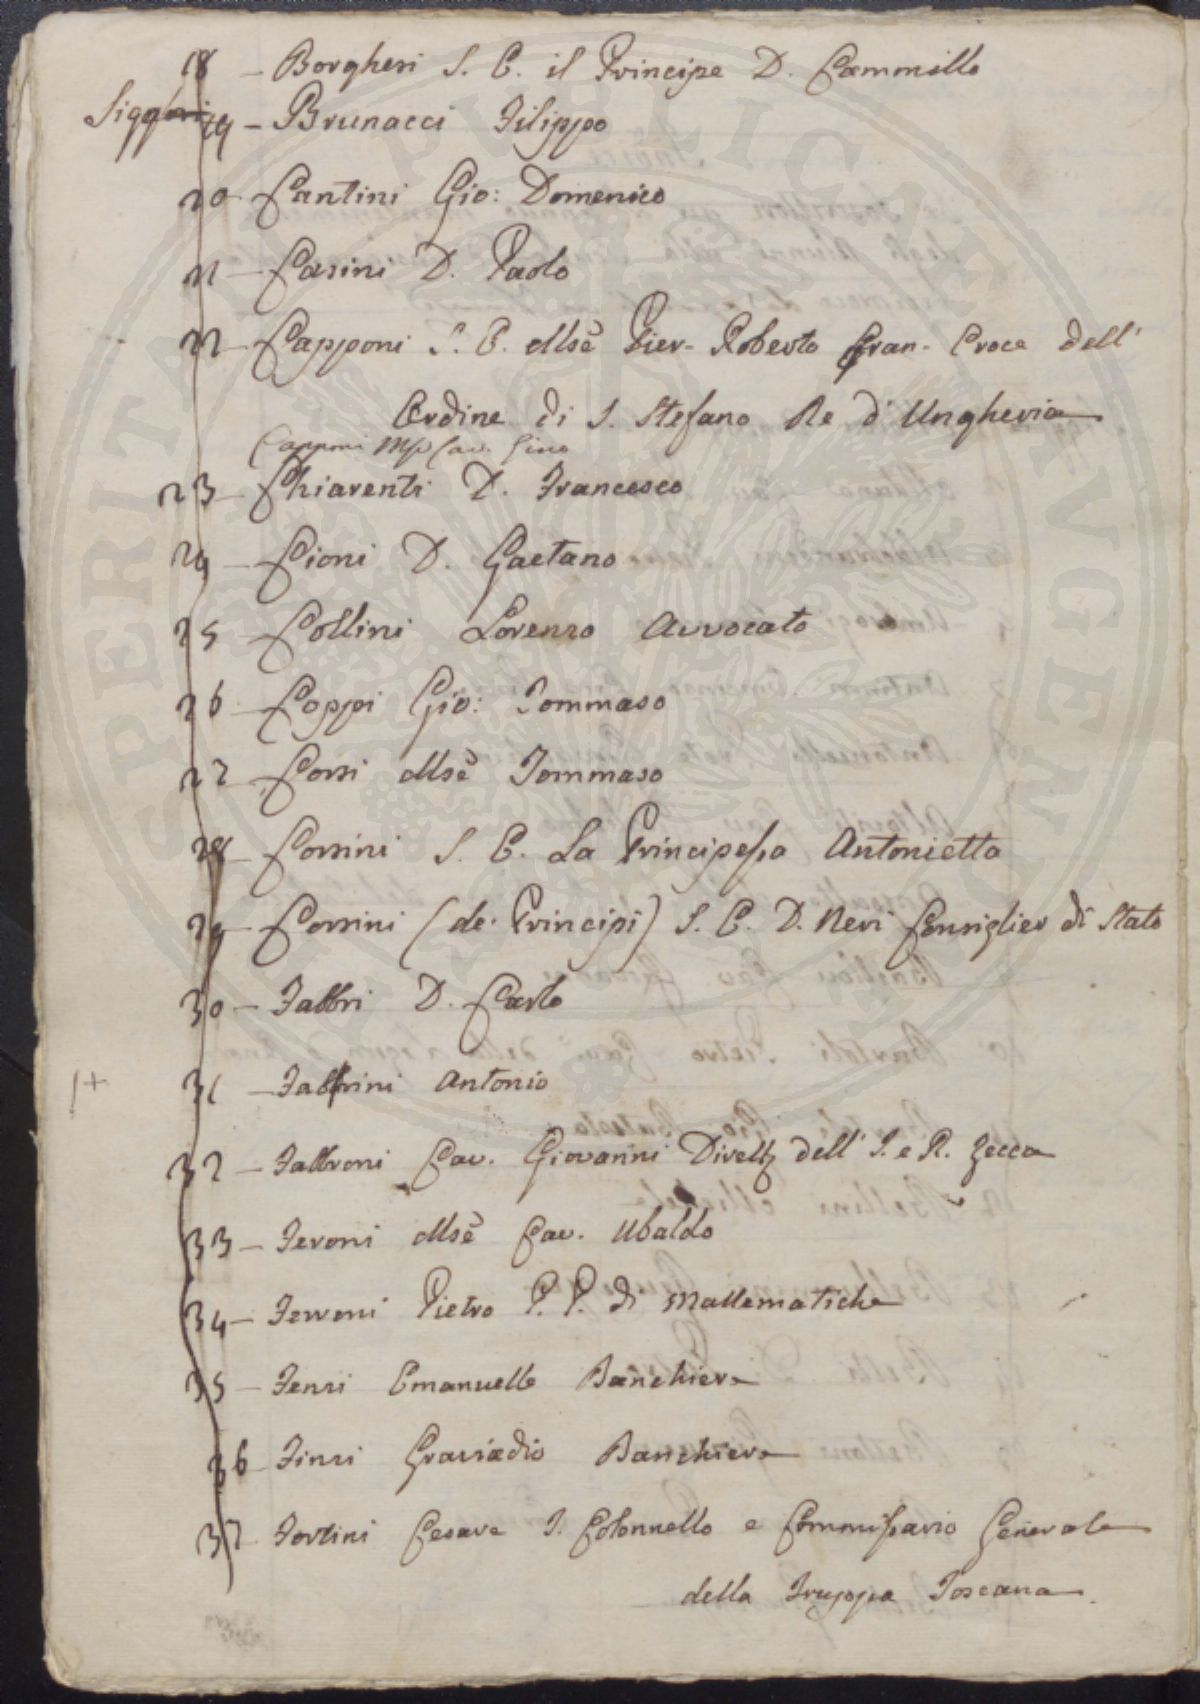 18 - Borghesi S. E. il Principe D. Cammillo
Sigg:ri 19 - Brunacci Filippo
20 - Cantini Gio: Domenico
21 - Casini D. Paolo
22 - Capponi S. E. Mse Pier-Roberto Gran-Croce dell'
Ordine di S. Stefano Re d'Ungheria
Capponi Mse Cav. Gino
23 - Chiarenti D. Francesco
24 - Cioni D. Gaetano
25 - Collini Lorenzo Avvocato
26 - Coppi Gio: Tommaso
27 - Corsi Mse Tommaso
28 - Corsini S. E. La Principessa Antonietta
29 - Corsini (de' Principi) S. E. D. Neri Consiglier di Stato
30 - Fabbri D. Carlo
1+ 31 - Fabbrini Antonio
32 - Fabbroni Cav. Giovanni Dirett dell' I. e R. Zecca
33 - Feroni Mse Cav. Ubaldo
34 - Ferroni Pietro P. P. di Mattematiche
35 - Fenzi Emanuelle Banchiere
36 - Finzi Graziadio Banchiere
37 - Fortini Cesare T. Colonnello e Commissario Generale
della Truppa Toscana
SPERITAS PUBLICAE AUGEN